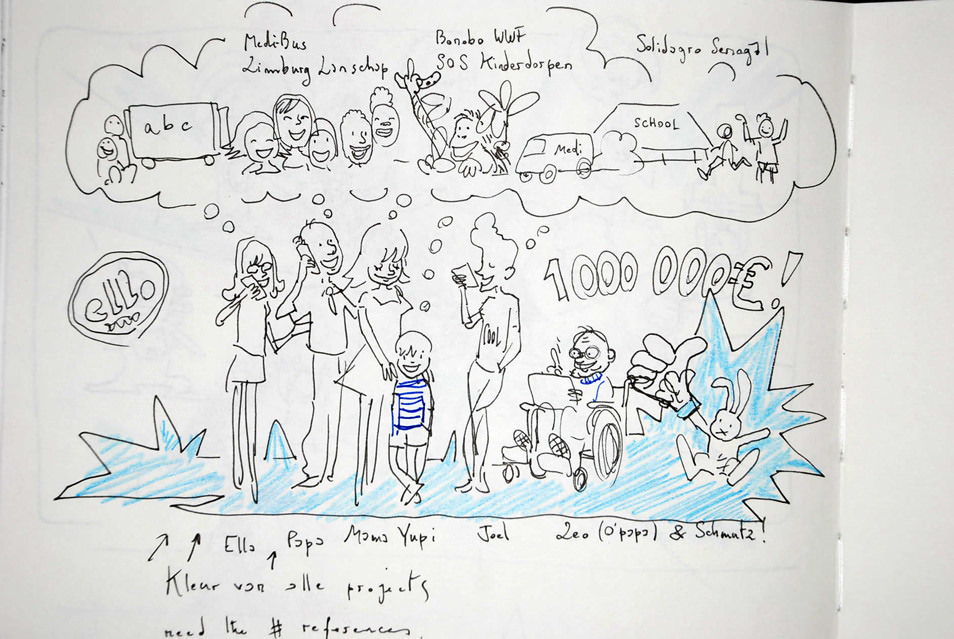 MediBus
Limburg Lanschap
Bonobo WWF
SOS Kinderdorpen
Solidagro Senegal
abc
Medi
SCHOOL
ello
1000 000 € !
COOL
Ella Papa Mama Yupi Joel Leo (O'papa) & Schmutz!
Kleur van alle projects
need the # references.